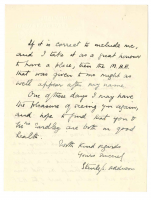 If it is correct to include me,
and I take it as a great honour
to have a place, then the M.B.E.
that was given to me ought as
well appear after my name.
One of these days I may have
the pleasure of seeing you again,
and hope to find that you &
Mrs Yardley are both in good
health.
With kind regards
Yours sincerely
Stanley Addison